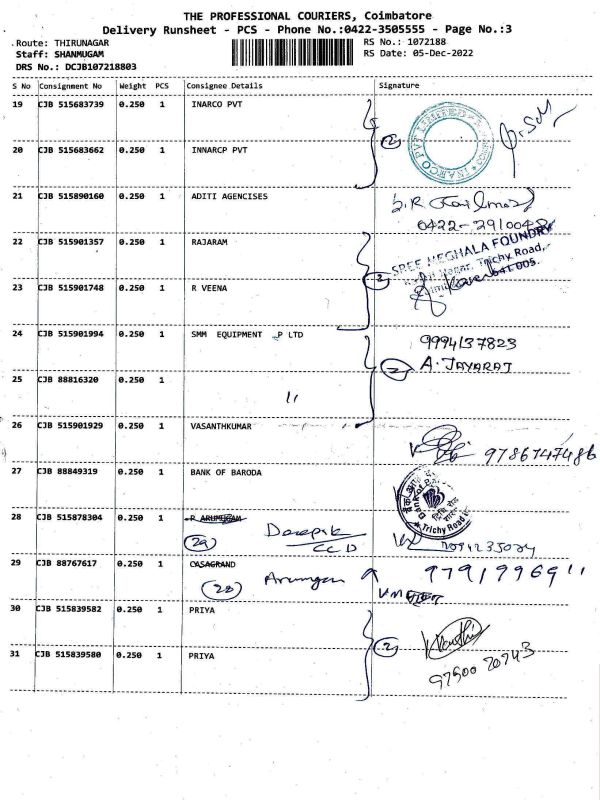 THE PROFESSIONAL COURIERS, Coimbatore
Delivery Runsheet - PCS - Phone No.:0422-3505555 - Page No.:3
Route: THIRUNAGAR
RS No.: 1072188
Staff: SHANMUGAM
RS Date: 05-Dec-2022
DRS No.: DCJB107218803
S No Consignment No Weight PCS Consignee Details Signature
19 CJB 515683739 0.250 1 INARCO PVT
2
20 CJB 515683662 0.250 1 INNARCP PVT
21 CJB 515890160 0.250 1 ADITI AGENCISES
0422-2910048
22 CJB 515901357 0.250 1 RAJARAM
SREE MEGHALA FOUNDRY
Nagar, Trichy Road,
641 005
2
23 CJB 515901748 0.250 1 R VEENA
24 CJB 515901994 0.250 1 SMM EQUIPMENT P LTD
9994137823
2 A. JAYARAJ
25 CJB 88816320 0.250 1 "
26 CJB 515901929 0.250 1 VASANTHKUMAR
9786747486
27 CJB 88849319 0.250 1 BANK OF BARODA
Trichy Road
28 CJB 515878304 0.250 1 P ARUMUGAM
29 Deepak
CCD
29 CJB 88767617 0.250 1 CASAGRAND
28 Arumugam
9791996911
30 CJB 515839582 0.250 1 PRIYA
2
31 CJB 515839580 0.250 1 PRIYA